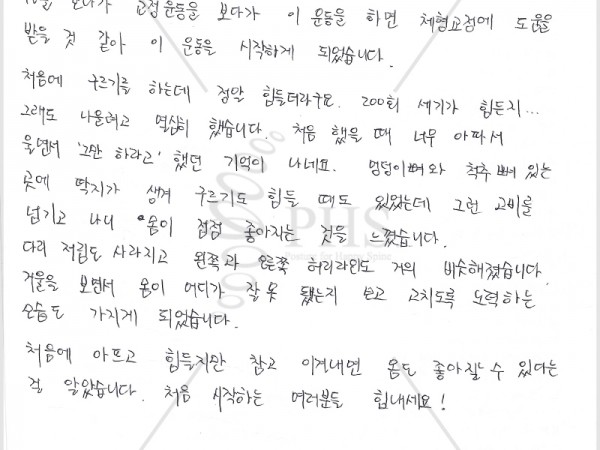 보다가 교정운동을 보다가 이 운동을 하면 체형교정에 도움을
받을 것 같아 이 운동을 시작하게 되었습니다.
처음에 구르기를 하는데 정말 힘들더라구요. 200회 세기가 힘든지...
그래도 나을려고 열심히 했습니다. 처음 했을 때 너무 아파서
울면서 '그만 하라고' 했던 기억이 나네요. 엉덩이뼈와 척추뼈 있는
곳에 딱지가 생겨 구르기도 힘들 때도 있었는데 그런 고비를
넘기고 나니 몸이 점점 좋아지는 것을 느꼈습니다.
다리 저림도 사라지고 왼쪽과 오른쪽 허리라인도 거의 비슷해졌습니다.
거울을 보면서 몸이 어디가 잘못 됐는지 보고 고치도록 노력하는
모습도 가지게 되었습니다.
처음에 아프고 힘들지만 참고 이겨내면 몸도 좋아질 수 있다는
걸 알았습니다. 처음 시작하는 여러분들 힘내세요!
PHS